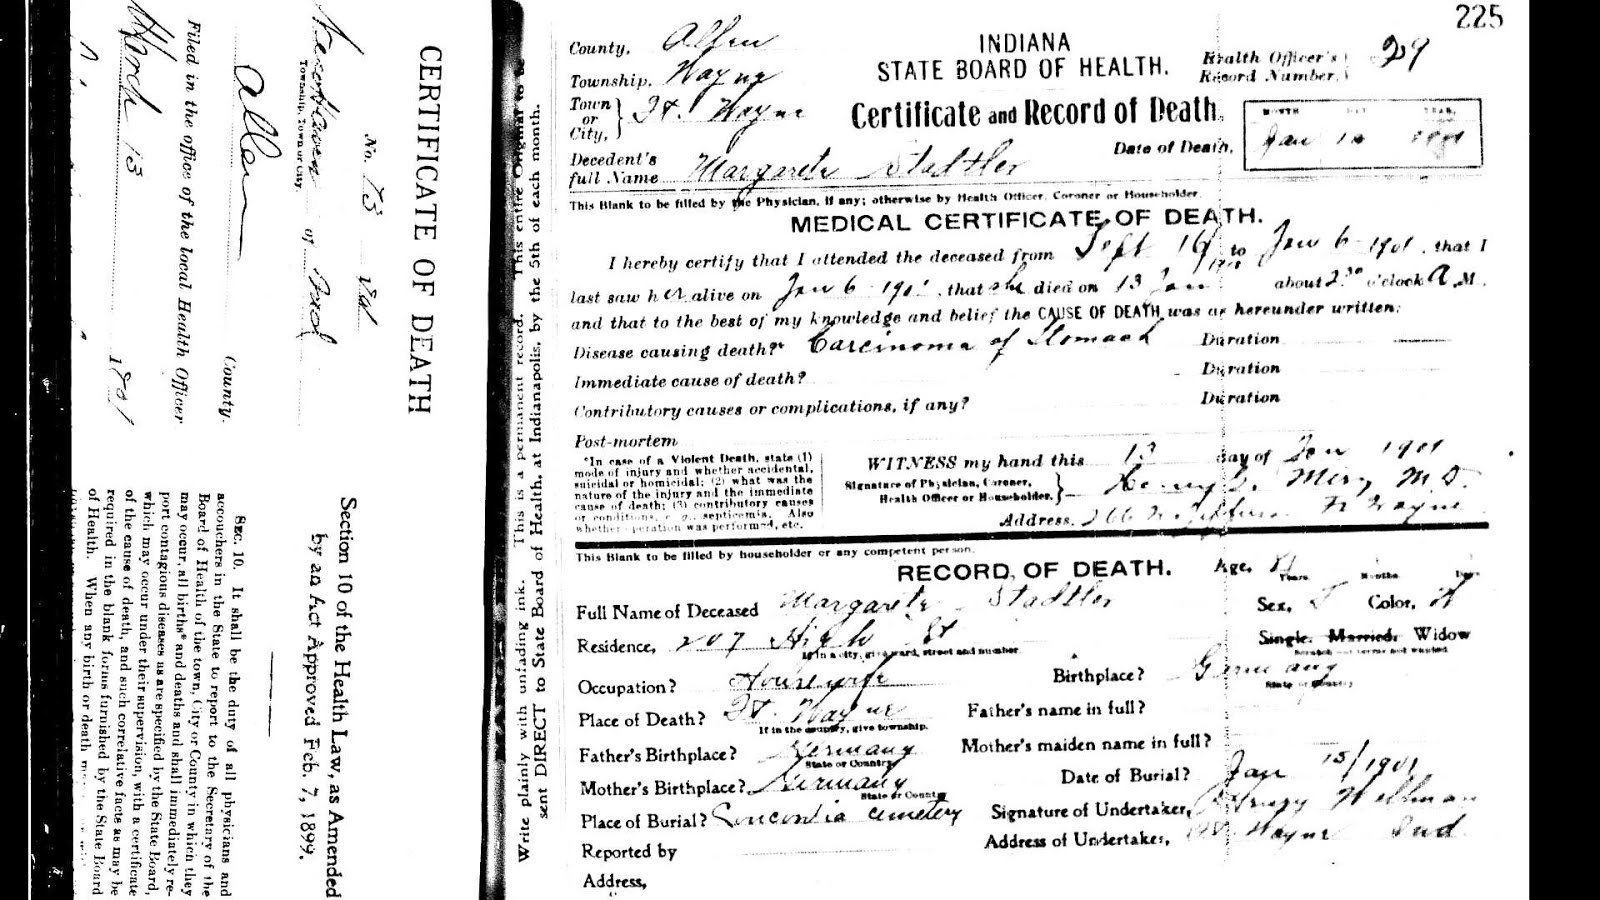 CERTIFICATE OF DEATH
No. 73
of
Township, Town or City.
Allen
County.
Filed in the office of the local Health Officer
March 13 1901
Section 10 of the Health Law, as Amended
by an Act Approved Feb. 7, 1899.
SEC. 10. It shall be the duty of all physicians and
accoucheurs in the State to report to the Secretary of the
Board of Health of the town, City or County in which they
may occur, all births* and deaths and shall immediately re-
port contagious diseases as are specified by the State Board,
which may occur under their supervision, with a certificate
of the cause of death, and such correlative facts as may be
required in the blank forms furnished by the State Board
of Health. When any birth or death
Write plainly with unfading ink. This is a permanent record. This entire Original to be
sent DIRECT to State Board of Health, at Indianapolis, by the 5th of each month.
225
County, Allen
Township, Wayne
Town or City, Ft. Wayne
INDIANA
STATE BOARD OF HEALTH.
Health Officer's Record Number, 29
Certificate and Record of Death
MONTH DAY YEAR
Date of Death, Jan
Decedent's full Name Margareta Stadtler
This Blank to be filled by the Physician, if any; otherwise by Health Officer, Coroner or Householder.
MEDICAL CERTIFICATE OF DEATH.
I hereby certify that I attended the deceased from Sept to Jan 6 1901, that I
last saw her alive on Jan 6 1901, that she died on 13 Jan about 2 30 o'clock A M.,
and that to the best of my knowledge and belief the CAUSE OF DEATH was as hereunder written:
Disease causing death?* Carcinoma of Stomach Duration
Immediate cause of death? Duration
Contributory causes or complications, if any? Duration
Post-mortem
*In case of a Violent Death, state (1)
mode of injury and whether accidental,
suicidal or homicidal; (2) what was the
nature of the injury and the immediate
cause of death; (3) contributory causes
or conditions, e. g., septicemia. Also
whether operation was performed, etc.
WITNESS my hand this 13 day of Jan 1901
Signature of Physician, Coroner,
Health Officer or Householder. Henry M D.
Address, Ft Wayne
This Blank to be filled by householder or any competent person.
RECORD OF DEATH.
Age, Years Months Days
Full Name of Deceased Margareta Stadtler
Sex, F Color, W
Residence, 207 High St
If in a city, give ward, street and number.
Single. Married. Widow
Scratch out terms not wanted.
Occupation? Housewife
Birthplace? Germany
State or Country
Place of Death? Ft. Wayne
If in the country, give township.
Father's name in full?
Father's Birthplace? Germany
State or Country
Mother's maiden name in full?
Mother's Birthplace? Germany
State or Country
Date of Burial? Jan 15/1901
Place of Burial? Concordia cemetery
Signature of Undertaker,
Reported by
Address of Undertaker, Ft Wayne Ind
Address,